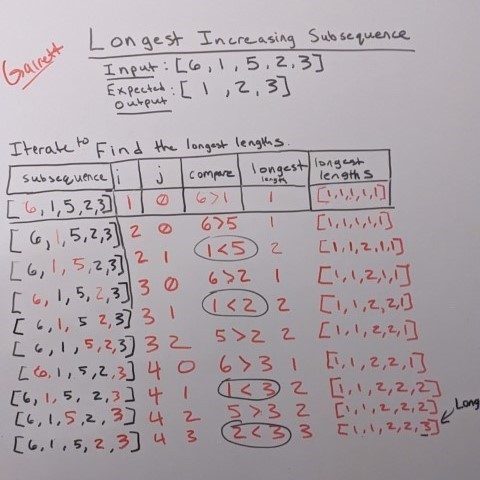 Garrett
Longest Increasing Subsequence
Input: [6, 1, 5, 2, 3]
Expected Output: [1, 2, 3]
Iterate to Find the longest lengths.
subsequence i j compare longest length longest lengths
[6,1,5,2,3] 1 0 6>1 1 [1,1,1,1,1]
[6,1,5,2,3] 2 0 6>5 1 [1,1,1,1,1]
[6,1,5,2,3] 2 1 1<5 2 [1,1,2,1,1]
[6,1,5,2,3] 3 0 6>2 1 [1,1,2,1,1]
[6,1,5 2,3] 3 1 1<2 2 [1,1,2,2,1]
[6,1,5,2,3] 3 2 5>2 2 [1,1,2,2,1]
[6,1,5,2,3] 4 0 6>3 1 [1,1,2,2,1]
[6,1,5,2,3] 4 1 1<3 2 [1,1,2,2,2]
[6,1,5,2,3] 4 2 5>3 2 [1,1,2,2,2]
[6,1,5,2,3] 4 3 2<3 3 [1,1,2,2,3]
Long